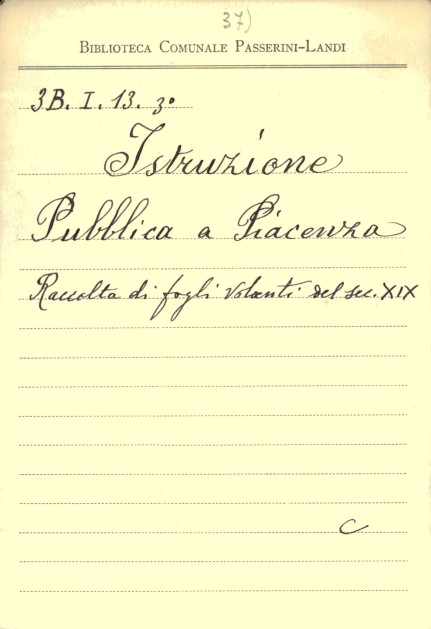 37)
BIBLIOTECA COMUNALE PASSERINI-LANDI
3B. I. 13. 3º
Istruzione
Pubblica a Piacenza
Raccolta di fogli volanti del sec. XIX
C